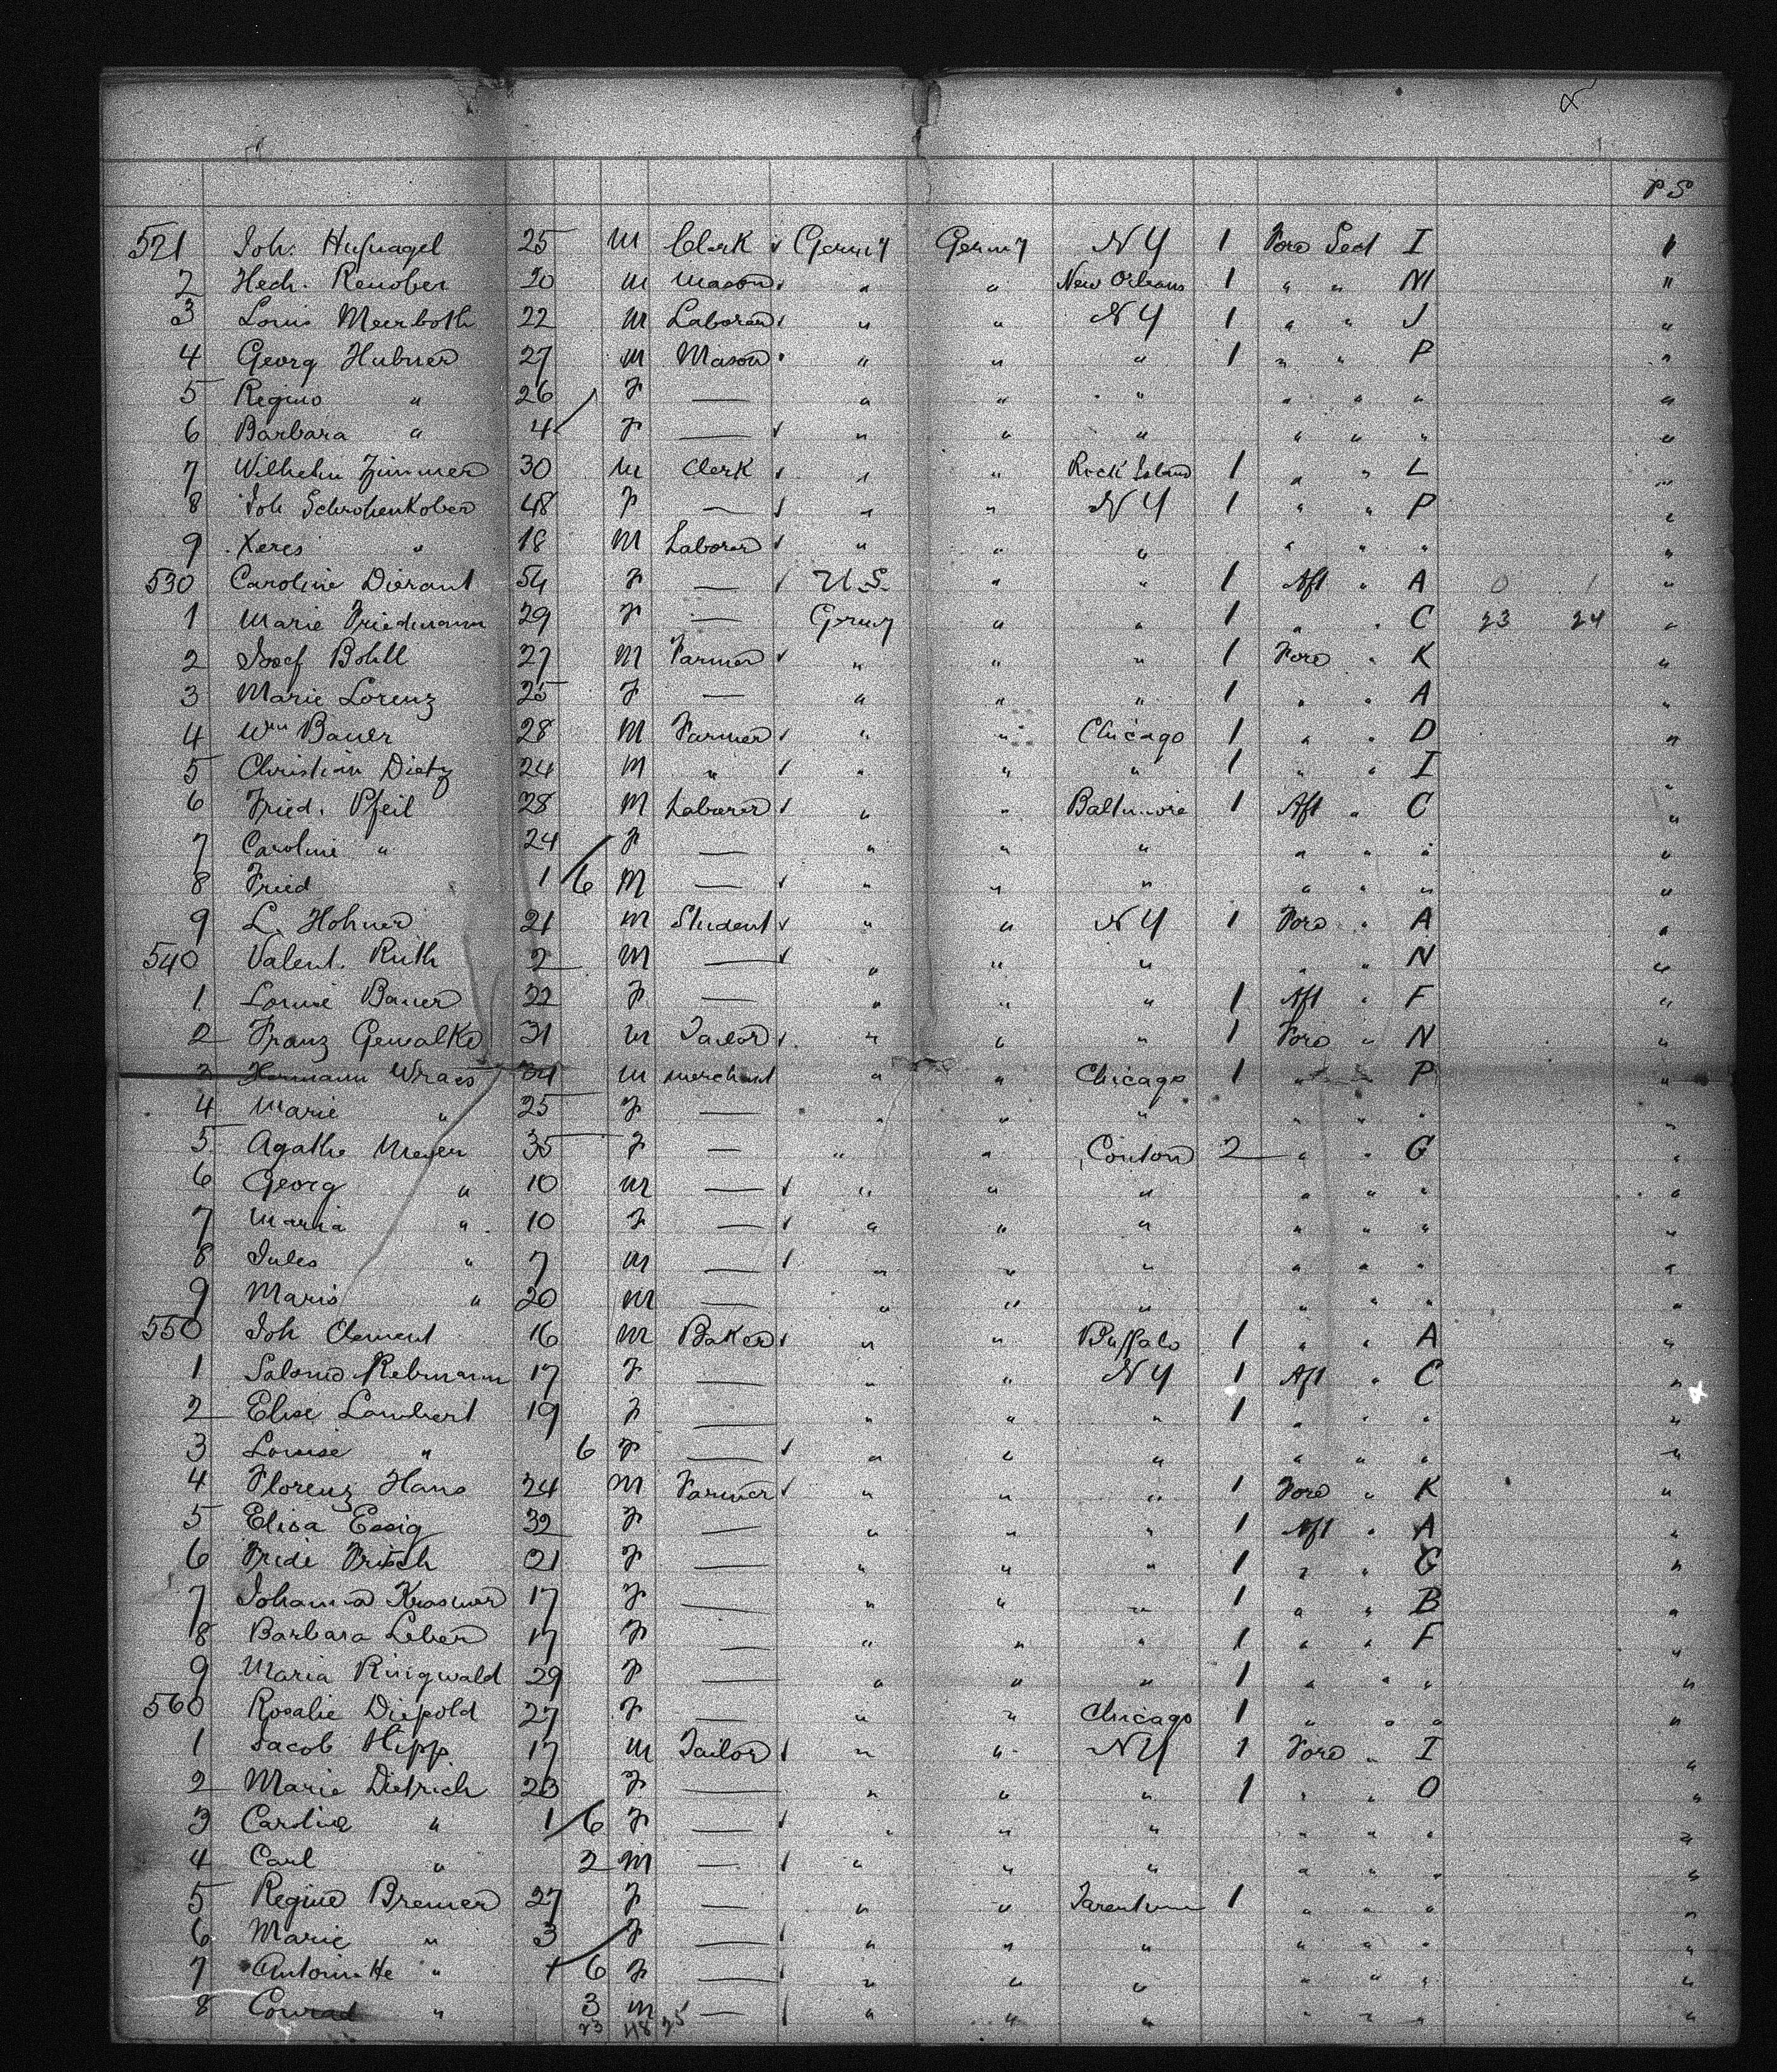 P S
521 Joh. Hufnagel 25 M Clerk Germ'y Germ'y N Y 1 Fore Sect I "
2 Hech. Renober 20 M Mason " " New Orleans 1 " " M "
3 Louis Meerboth 22 M Laborer " " N Y 1 " " J "
4 Georg Hubner 27 M Mason " " " 1 " " P "
5 Regine " 26 F — " " " " " " "
6 Barbara " 4 F — " " " " " " "
7 Wilhelm Zimmer 30 M Clerk " " Rock Island 1 " " L "
8 Joh Schrohenkober 48 F — " " N Y 1 " " P "
9 Xeres " 18 M Laborer " " " " " " "
530 Caroline Dierant 54 F — U.S. " " 1 Aft " A 0 1 "
1 Marie Friedmann 29 F — Germy " " 1 " " C 23 24 "
2 Josef Bohll 27 M Farmer " " " 1 Fore " K "
3 Marie Lorenz 25 F — " " " 1 " " A "
4 Wm Bauer 28 M Farmer " " Chicago 1 " " D "
5 Christian Dietz 24 M " " " " 1 " " I "
6 Fried. Pfeil 28 M Laborer " " Baltimore 1 Aft " C "
7 Caroline " 24 F — " " " " " " "
8 Fried 1 6 M — " " " " " " "
9 L. Hohner 21 M Student " " N Y 1 Fore " A "
540 Valent. Ruth 2 M — " " " " " N "
1 Louise Bauer 22 F — " " " 1 Aft " F "
2 Franz Gewalke 31 M Tailor " " " 1 Fore " N "
3 Hermann Wraes 34 M Merchant " " Chicago 1 " " P "
4 Marie " 25 F — " " " " " " "
5 Agathe Meyer 35 F — " " Canton 2 " " G "
6 Georg " 10 M — " " " " " " "
7 Maria " 10 F — " " " " " " "
8 Jules " 7 M — " " " " " " "
9 Maris " 20 M — " " " " " " "
550 Joh Clement 16 M Baker " " Buffalo 1 " " A "
1 Salome Rebmann 17 F — " " N Y 1 Aft " C "
2 Elise Lambert 19 F — " " " 1 " " " "
3 Louise " 6 F — " " " " " " "
4 Florenz Hans 24 M Farmer " " " 1 Fore " K "
5 Elisa Essig 32 F — " " " 1 Aft " A "
6 Fride Fritsch 21 F — " " " 1 " " G "
7 Johanna Krasmer 17 F — " " " 1 " " B "
8 Barbara Leber 17 F — " " " 1 " " F "
9 Maria Ringwald 29 F — " " " 1 " " " "
560 Rosalie Diepold 27 F — " " Chicago 1 " " " "
1 Jacob Hipp 17 M Tailor " " N Y 1 Fore " I "
2 Marie Dietrich 23 F — " " " 1 " " O "
3 Caroline " 1 6 F — " " " " " " "
4 Carl " 2 M — " " " " " " "
5 Regine Bremer 27 F — " " Tarentum 1 " " " "
6 Marie " 3 F — " " " " " " "
7 Antoinette " 1 6 F — " " " " " " "
8 Conrad " 3 M — " " " " " " "
23 48 25